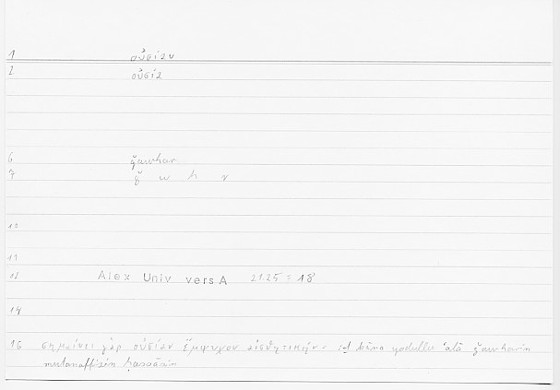 1 οὐσίαν
2 οὐσία
6 ǧawhar
7 ǧ w h r
10
11
13 Alex Univ vers A 21.25 = 18
14
15 σημαίνει γὰρ οὐσίαν ἔμψυχον αἰσθητικήν = yadullu ʿalā ǧawharin
mutanaffisin ḥassāsin